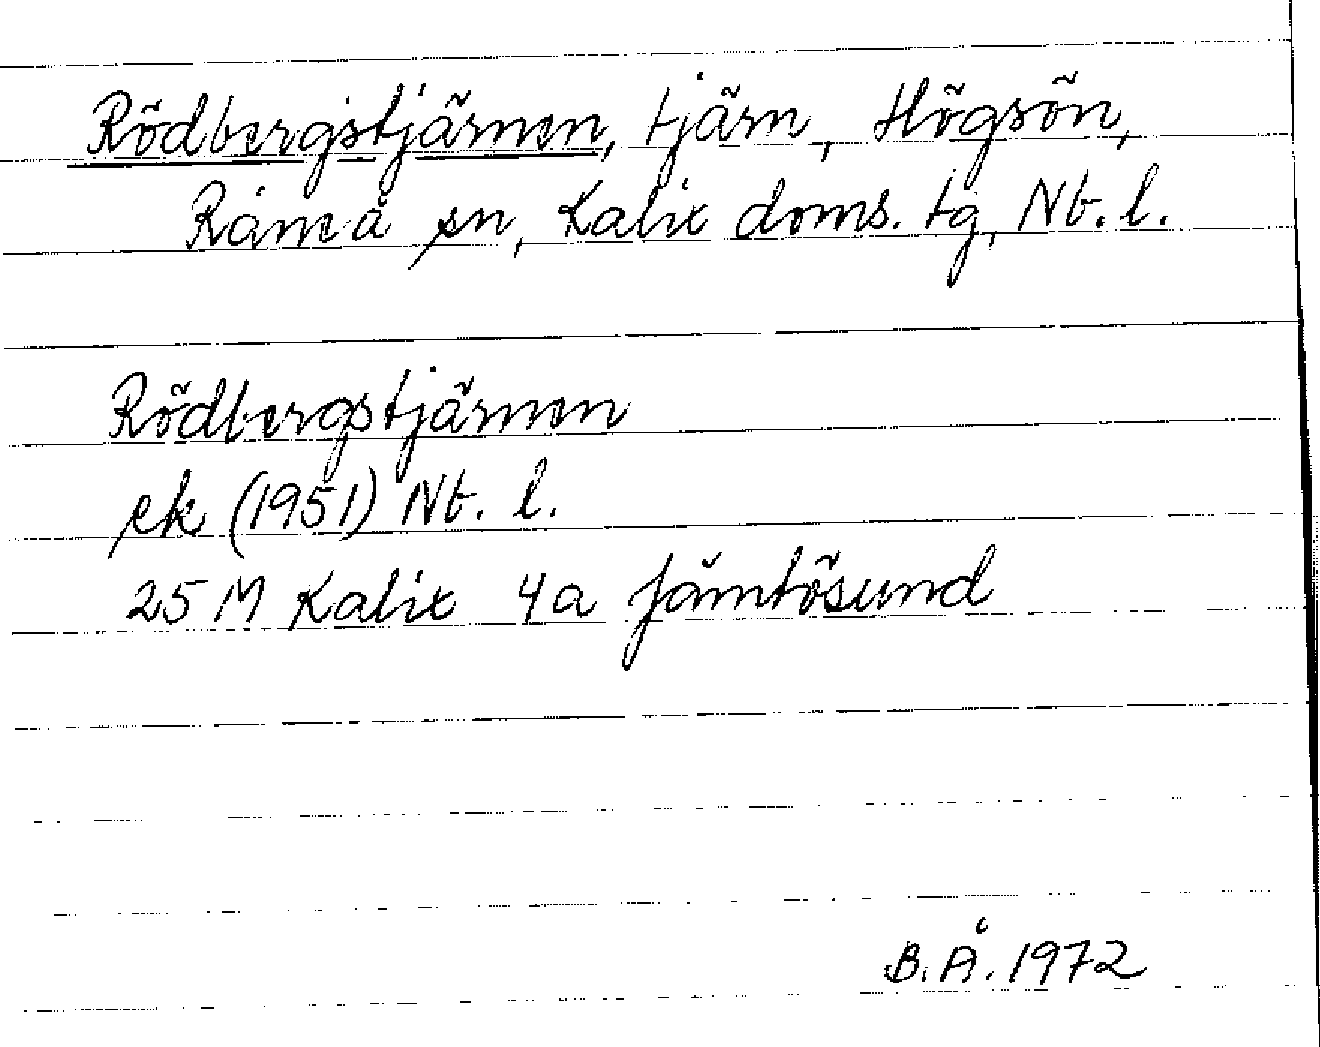 Rödbergstjärnen, tjärn, Högsön,
Råneå sn, Kalix doms. tg, Nb. l.
Rödbergstjärnen
ek (1951) Nb. l.
25 M Kalix 4a Jämtösund
B.Å. 1972